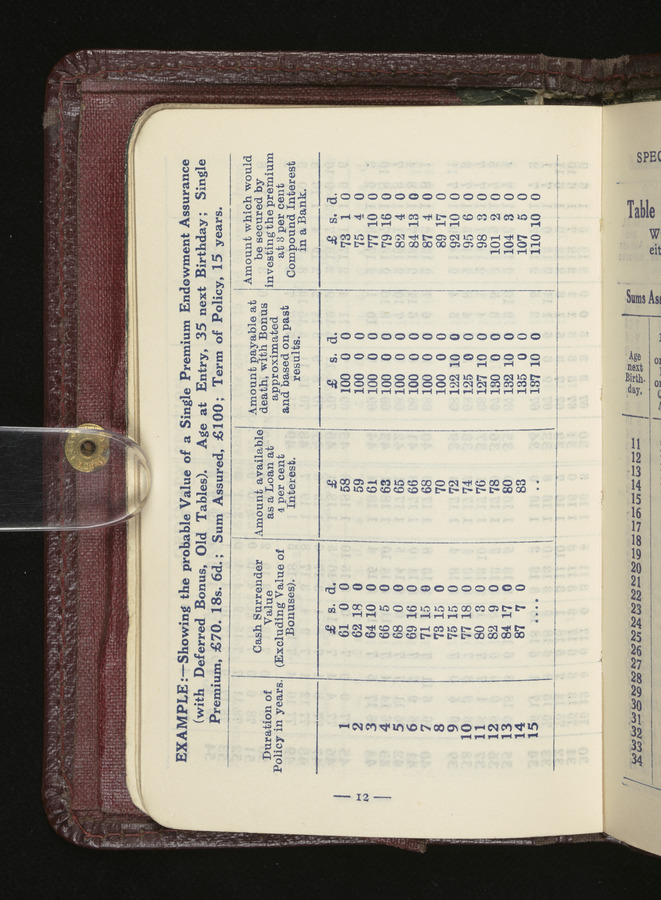 EXAMPLE:—Showing the probable Value of a Single Premium Endowment Assurance
(with Deferred Bonus, Old Tables). Age at Entry, 35 next Birthday; Single
Premium, £70. 18s. 6d.; Sum Assured, £100; Term of Policy, 15 years.
Duration of Policy in years. | Cash Surrender Value (Excluding Value of Bonuses). | Amount available as a Loan at 4 per cent Interest. | Amount payable at death, with Bonus approximated and based on past results. | Amount which would be secured by investing the premium at 3 per cent Compound Interest in a Bank.
£ s. d. | £ | £ s. d. | £ s. d.
1 | 61 0 0 | 58 | 100 0 0 | 73 1 0
2 | 62 18 0 | 59 | 100 0 0 | 75 4 0
3 | 64 10 0 | 61 | 100 0 0 | 77 10 0
4 | 66 5 0 | 63 | 100 0 0 | 79 16 0
5 | 68 0 0 | 65 | 100 0 0 | 82 4 0
6 | 69 16 0 | 66 | 100 0 0 | 84 13 0
7 | 71 15 0 | 68 | 100 0 0 | 87 4 0
8 | 73 15 0 | 70 | 100 0 0 | 89 17 0
9 | 75 15 0 | 72 | 122 10 0 | 92 10 0
10 | 77 18 0 | 74 | 125 0 0 | 95 6 0
11 | 80 3 0 | 76 | 127 10 0 | 98 3 0
12 | 82 9 0 | 78 | 130 0 0 | 101 2 0
13 | 84 17 0 | 80 | 132 10 0 | 104 3 0
14 | 87 7 0 | 83 | 135 0 0 | 107 5 0
15 | .... | .. | 137 10 0 | 110 10 0
— 12 —
SPEC
Table
W
eit
Sums Ass
Age
next
Birth-
day.
11
12
13
14
15
16
17
18
19
20
21
22
23
24
25
26
27
28
29
30
31
32
33
34